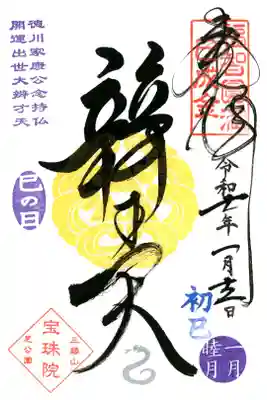 奉拝
令和七年 一月 日
初巳
一月
睦月
辨才天
徳川家康公念持仏
開運出世大辨才天
巳の日
三縁山
宝珠院
芝公園